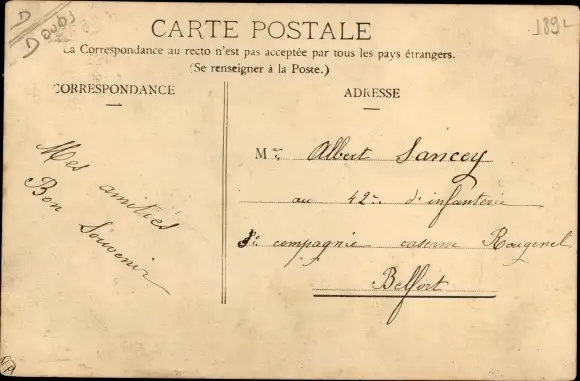 D
Doubs
189
CARTE POSTALE
La Correspondance au recto n'est pas acceptée par tous les pays étrangers.
(Se renseigner à la Poste.)
CORRESPONDANCE
Mes amitiés
Bon Souvenir
ADRESSE
Mr Albert Sancey
au 42e d'infanterie
compagnie caserne Rougenel
Belfort